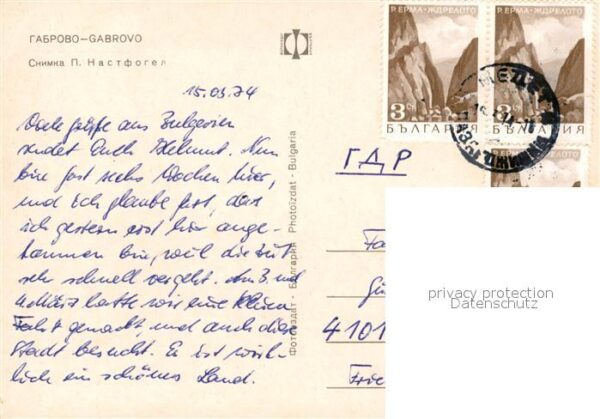 ГАБРОВО—GABROVO
Снимка П. Настфогел
15.03.74
Viele Grüße aus Bulgarien
sendet Euch Helmut. Nun
bin fast sechs Wochen hier,
und ich glaube fest, das
ich gestern erst hier ange-
kommen bin, weil die Zeit
sehr schnell vergeht. Am 3. und
März hatte wir eine kleine
Fahrt gemacht, und auch diese
Stadt besucht. Es ist wirk-
lich ein schönes Land.
Фотоиздат - България Photoizdat - Bulgaria
Р. ЕРМА - ЖДРЕЛОТО
3 СТ
БЪЛГАРИЯ
Р. ЕРМА - ЖДРЕЛОТО
3 СТ
БЪЛГАРИЯ
ГДР
privacy protection
Datenschutz
Fa
Gü
4101
Frie